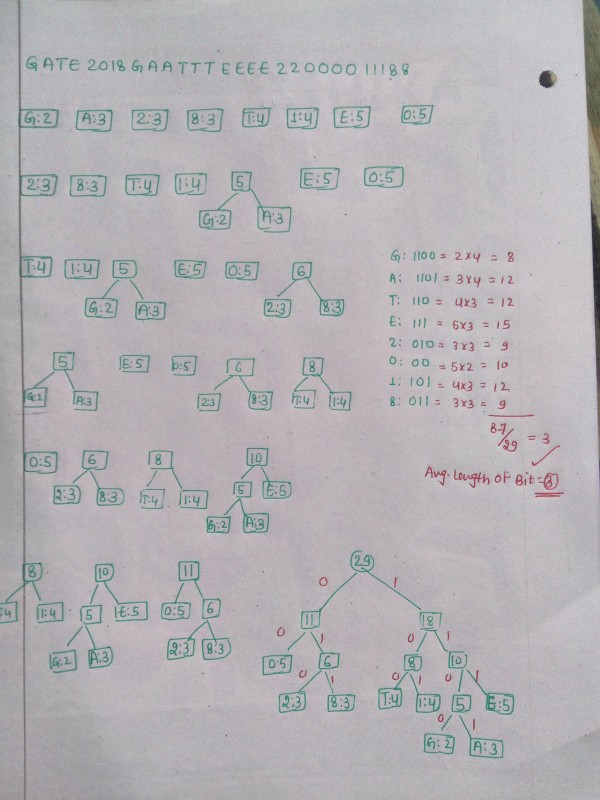 GATE 2018 GAATTTEEEE 220000 11188
G:2 A:3 2:3 8:3 T:4 1:4 E:5 0:5
2:3 8:3 T:4 1:4 5 E:5 0:5
G:2 A:3
T:4 1:4 5 E:5 0:5 6
G:2 A:3 2:3 8:3
G: 1100 = 2×4 = 8
A: 1101 = 3×4 = 12
T: 110 = 4×3 = 12
E: 111 = 5×3 = 15
2: 010 = 3×3 = 9
0: 00 = 5×2 = 10
1: 101 = 4×3 = 12
8: 011 = 3×3 = 9
87/29 = 3
Avg. Length of Bit = 3
5 E:5 0:5 6 8
G:2 A:3 2:3 8:3 T:4 1:4
0:5 6 8 10
2:3 8:3 T:4 1:4 5 E:5
G:2 A:3
8 10 11
T:4 1:4 5 E:5 0:5 6
G:2 A:3 2:3 8:3
29
0 1
11 18
0 1 0 1
0:5 6 8 10
0 1 0 1 0 1
2:3 8:3 T:4 1:4 5 E:5
0 1
G:2 A:3